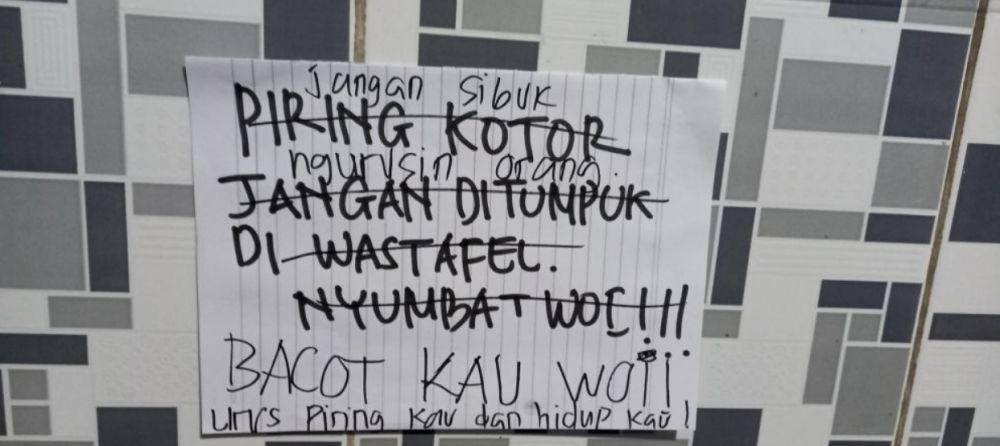 Jangan sibuk
PIRING KOTOR
ngurusin orang.
JANGAN DITUMPUK
DI WASTAFEL.
NYUMBAT WOI!!!
BACOT KAU WOIi
urus Piring kau dan hidup kau!